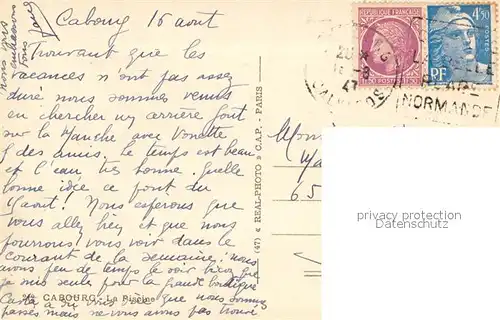 Cabourg 15 aout
Trouvant que les
vacances n'ont pas assez
duré nous sommes venus
en chercher un arrière gout
sur la Manche avec Vonette
& des amis. Le temps est beau
et l'eau très bonne. Quelle
bonne idée ce pont du
15 aout! Nous espérons que
vous allez bien et que nous
pourrons vous voir dans le
courant de la semaine. nous
avons peu de temps le voir bien que
je sois seule pour la grande boutique
que nous sommes
passés mais ne vous avons pas trouvé
nous vous
embrassons
tous
CABOURG - La Piscine
(47) « REAL-PHOTO » C.A.P. - PARIS
Mon
65
RÉPUBLIQUE FRANÇAISE
4F50
POSTES
RF
20
-8
47
CALVADOS
(NORMANDIE
privacy protection
Datenschutz